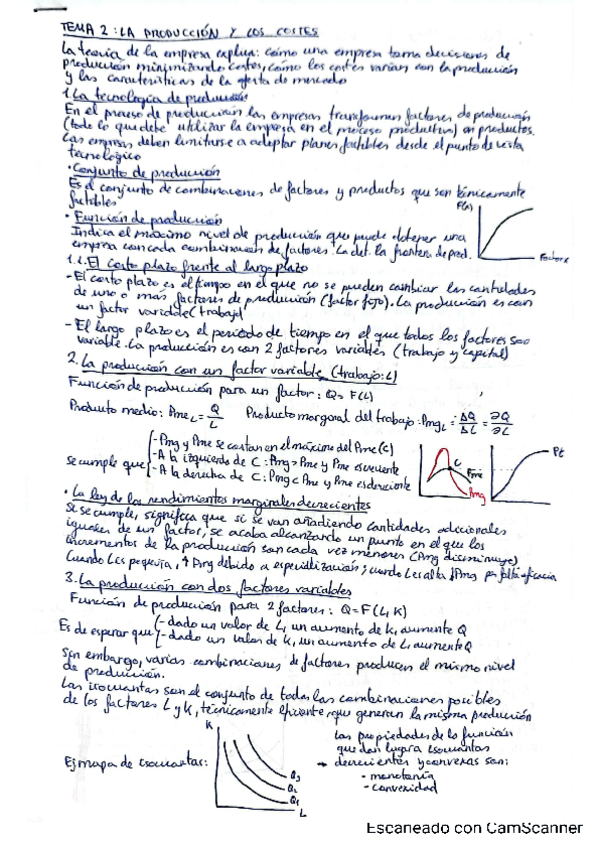 TEMA 2: LA PRODUCCIÓN Y LOS COSTES
La teoría de la empresa explica: cómo una empresa toma decisiones de
producción minimizando costes, cómo los costes varían con la producción
y las características de la oferta de mercado
1. La tecnología de producción
En el proceso de producción las empresas transforman factores de producción
(todo lo que debe utilizar la empresa en el proceso productivo) en productos.
Las empresas deben limitarse a adoptar planes factibles desde el punto de vista
tecnológico
· Conjunto de producción
Es el conjunto de combinaciones de factores y productos que son técnicamente
factibles
F(x)
· Función de producción
Indica el máximo nivel de producción que puede obtener una
empresa con cada combinación de factores. La det. la frontera de prod.
Factor x
1.1. El corto plazo frente al largo plazo
- El corto plazo es el tiempo en el que no se pueden cambiar las cantidades
de uno o más factores de producción (factor fijo). La producción es con
un factor variable (trabajo)
- El largo plazo es el periodo de tiempo en el que todos los factores son
variable. La producción es con 2 factores variables (trabajo y capital)
2. La producción con un factor variable (trabajo: L)
Función de producción para un factor: Q = F(L)
Producto medio: Pme_L = Q/L Producto marginal del trabajo: Pmg_L = ΔQ/ΔL = ∂Q/∂L
Se cumple que
- Pmg y Pme se cortan en el máximo del Pme (C)
- A la izquierda de C: Pmg > Pme y Pme es creciente
- A la derecha de C: Pmg < Pme y Pme es decreciente
C Pme Pmg
Pt
· La ley de los rendimientos marginales decrecientes
Si se cumple, significa que si se van añadiendo cantidades adicionales
iguales de un factor, se acaba alcanzando un punto en el que los
incrementos de la producción son cada vez menores (Pmg disminuye)
Cuando L es pequeña, ↑ Pmg debido a especialización; cuando L es alta ↓Pmg por falta eficacia
3. La producción con dos factores variables
Función de producción para 2 factores: Q = F(L, K)
Es de esperar que
- dado un valor de L, un aumento de K, aumente Q
- dado un valor de K, un aumento de L, aumente Q
Sin embargo, varias combinaciones de factores producen el mismo nivel
de producción.
Las isocuantas son el conjunto de todas las combinaciones posibles
de los factores L y K, técnicamente eficiente, que generan la misma producción
K
Ej mapa de isocuantas:
Q3
Q2
Q1
L
Las propiedades de la función
que dan lugar a isocuantas
→ decrecientes y convexas son:
- monotonía
- convexidad
Escaneado con CamScanner